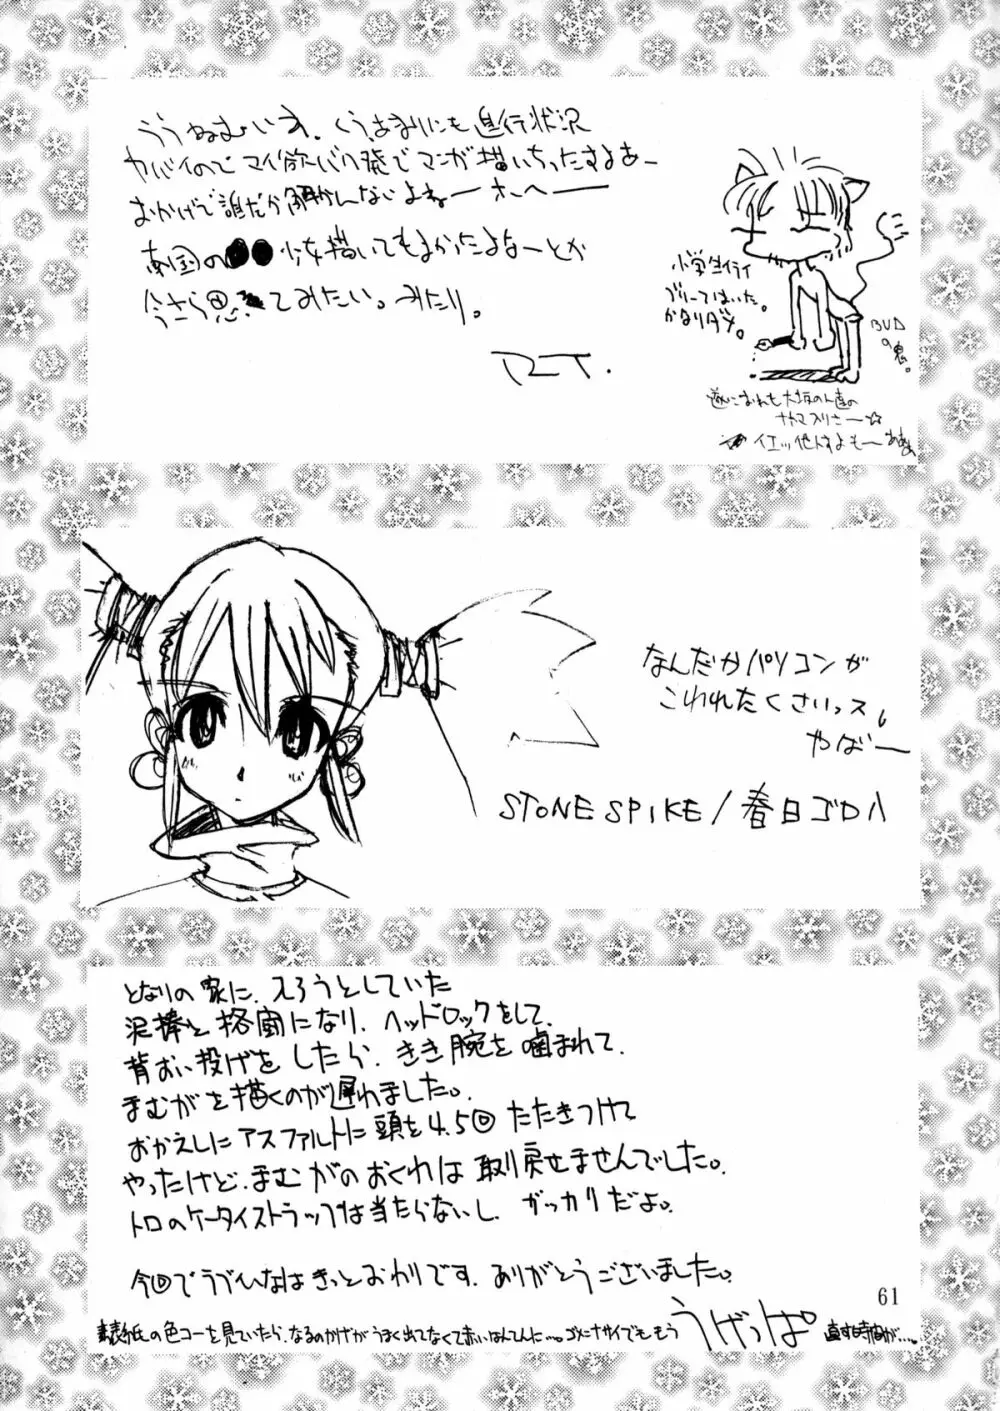 ううねむいオ、くうあまりにも進行状況
ヤバイのでマイ欲バク発でマンガ描いちったすよあー
おかげで誰だか解かんないよねーホヘー
南国の●●少女描いてもよかったよなーとか
今さら思ってみたい。みたり。
小学生イライ
ブリーフはいた。
かなりダメ。
BUD
の鬼。
遂におれも大坂の人達の
イエッ他人すよもー
なんだかパソコンが
こわれたくさいっス。
やばー
STONE SPIKE / 春日ゴロ八
となりの家に、入ろうとしていた
泥棒と格闘になり、ヘッドロックをして、
背おい投げをしたら、きき腕を噛まれて、
まむがを描くのが遅れました。
おかえしにアスファルトに頭を4.5回たたきつけて
やったけど、まむがのおくれは取り戻せませんでした。
トロのケータイストラップは当たらないし、ガッカリだよ。
今回でラブひなはきっとおわりです。ありがとうございました。
61
表紙の色コーを見ていたら、なるのかげがうまく出てなくて赤いはんてんに…。ゴメーナサイでももう
うげっぱ
直す時間が…。